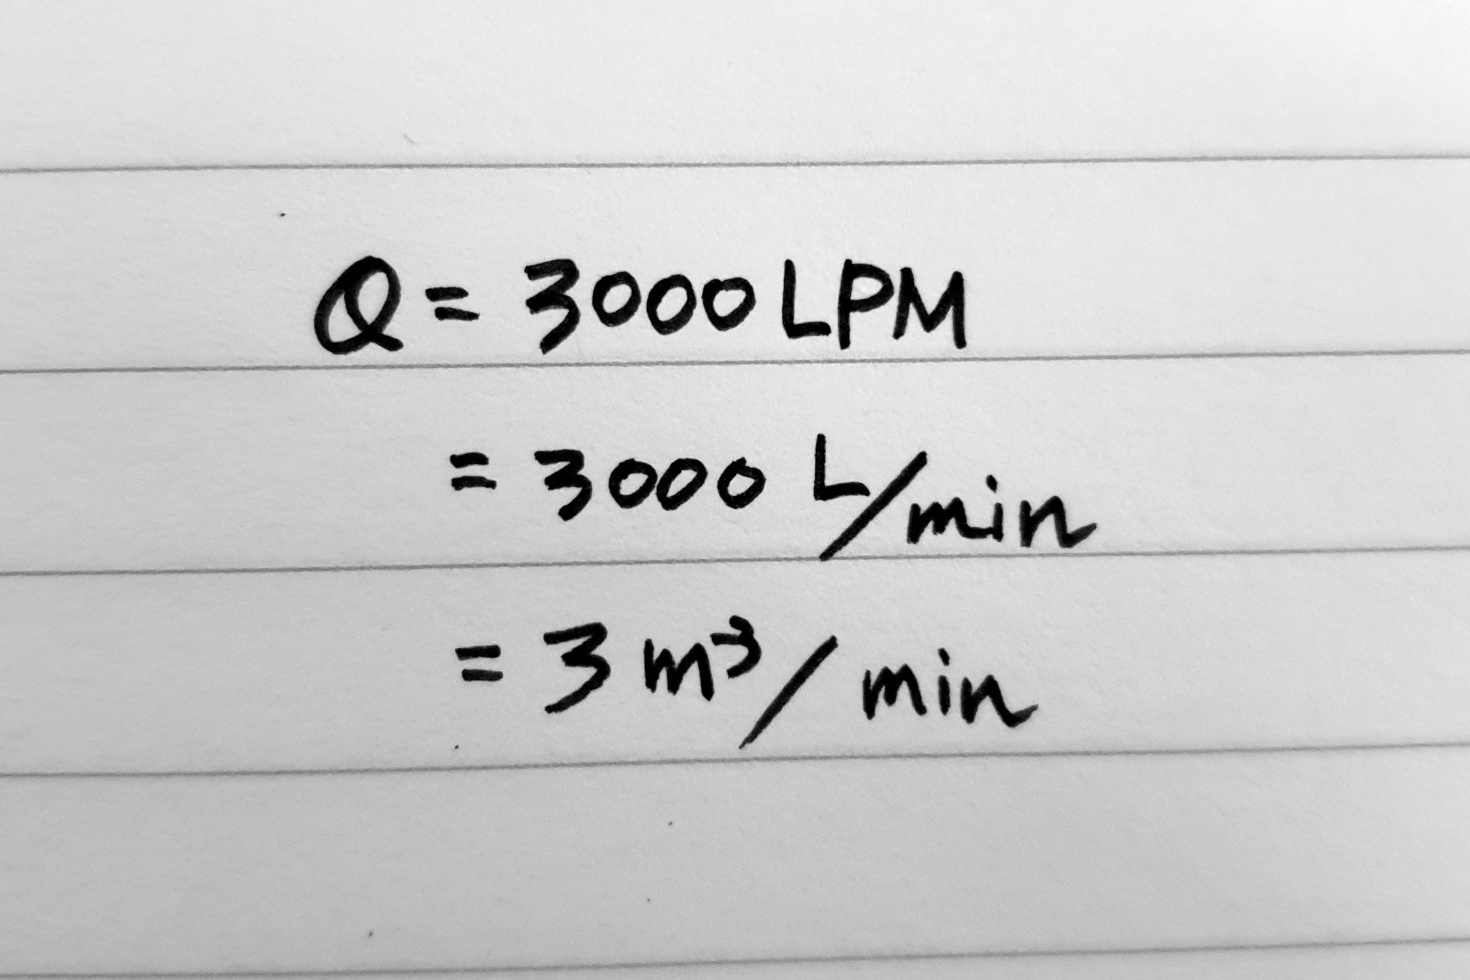 Q = 3000 LPM
= 3000 L/min
= 3 m³/min